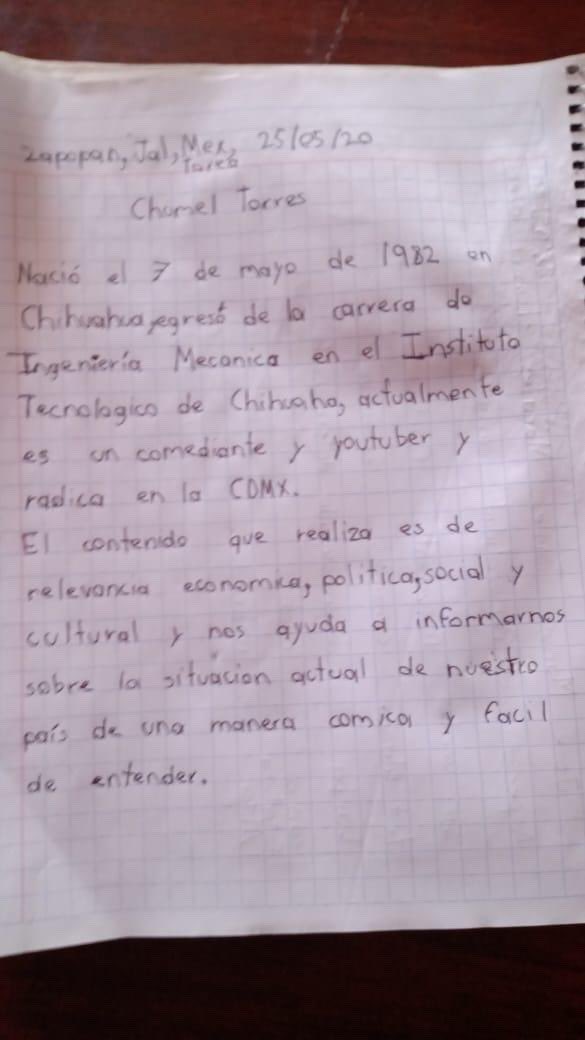 Zapopan, Jal, Mex, 25/05/20
Tarea
Chumel Torres
Nació el 7 de mayo de 1982 en
Chihuahua, egresó de la carrera de
Ingeniería Mecanica en el Instituto
Tecnologico de Chihuaho, actualmente
es un comediante y youtuber y
radica en la CDMX.
El contenido que realiza es de
relevancia economica, politica, social y
cultural y nos ayuda a informarnos
sobre la situacion actual de nuestro
país de una manera comica y facil
de entender.